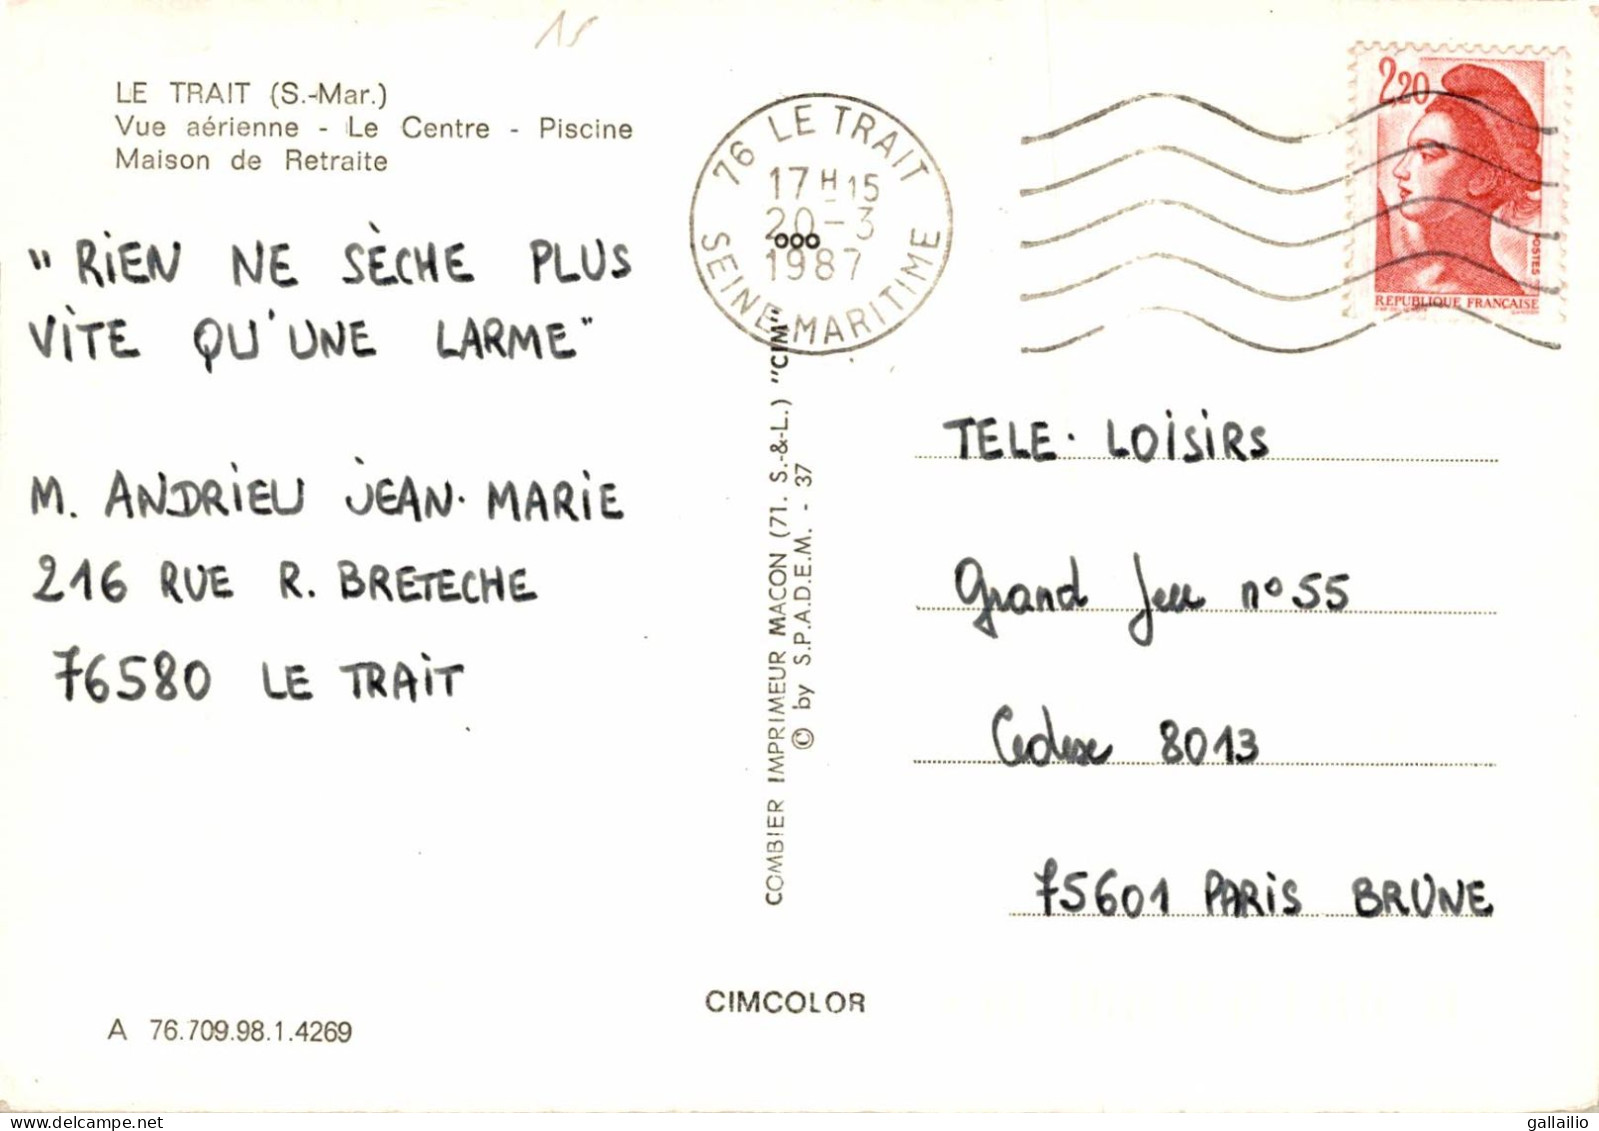 15
LE TRAIT (S.-Mar.)
Vue aérienne - Le Centre - Piscine
Maison de Retraite
"RiEN NE SÈCHE PLUS
ViTE QU'UNE LARME"
M. ANDRiEU JEAN-MARiE
216 RUE R. BRETECHE
76580 LE TRAiT
A 76.709.98.1.4269
76 LE TRAIT
17 H 15
20-3
ooo
1987
SEINE-MARITIME
COMBIER IMPRIMEUR MACON (71. S.-&-L.) "CIM"
© by S.P.A.D.E.M. - 37
CIMCOLOR
2,20
POSTES
REPUBLIQUE FRANÇAISE
TELE-LOiSiRS
Grand Jeu n° 55
Cedex 8013
75601 PARiS BRUNE
gallailio